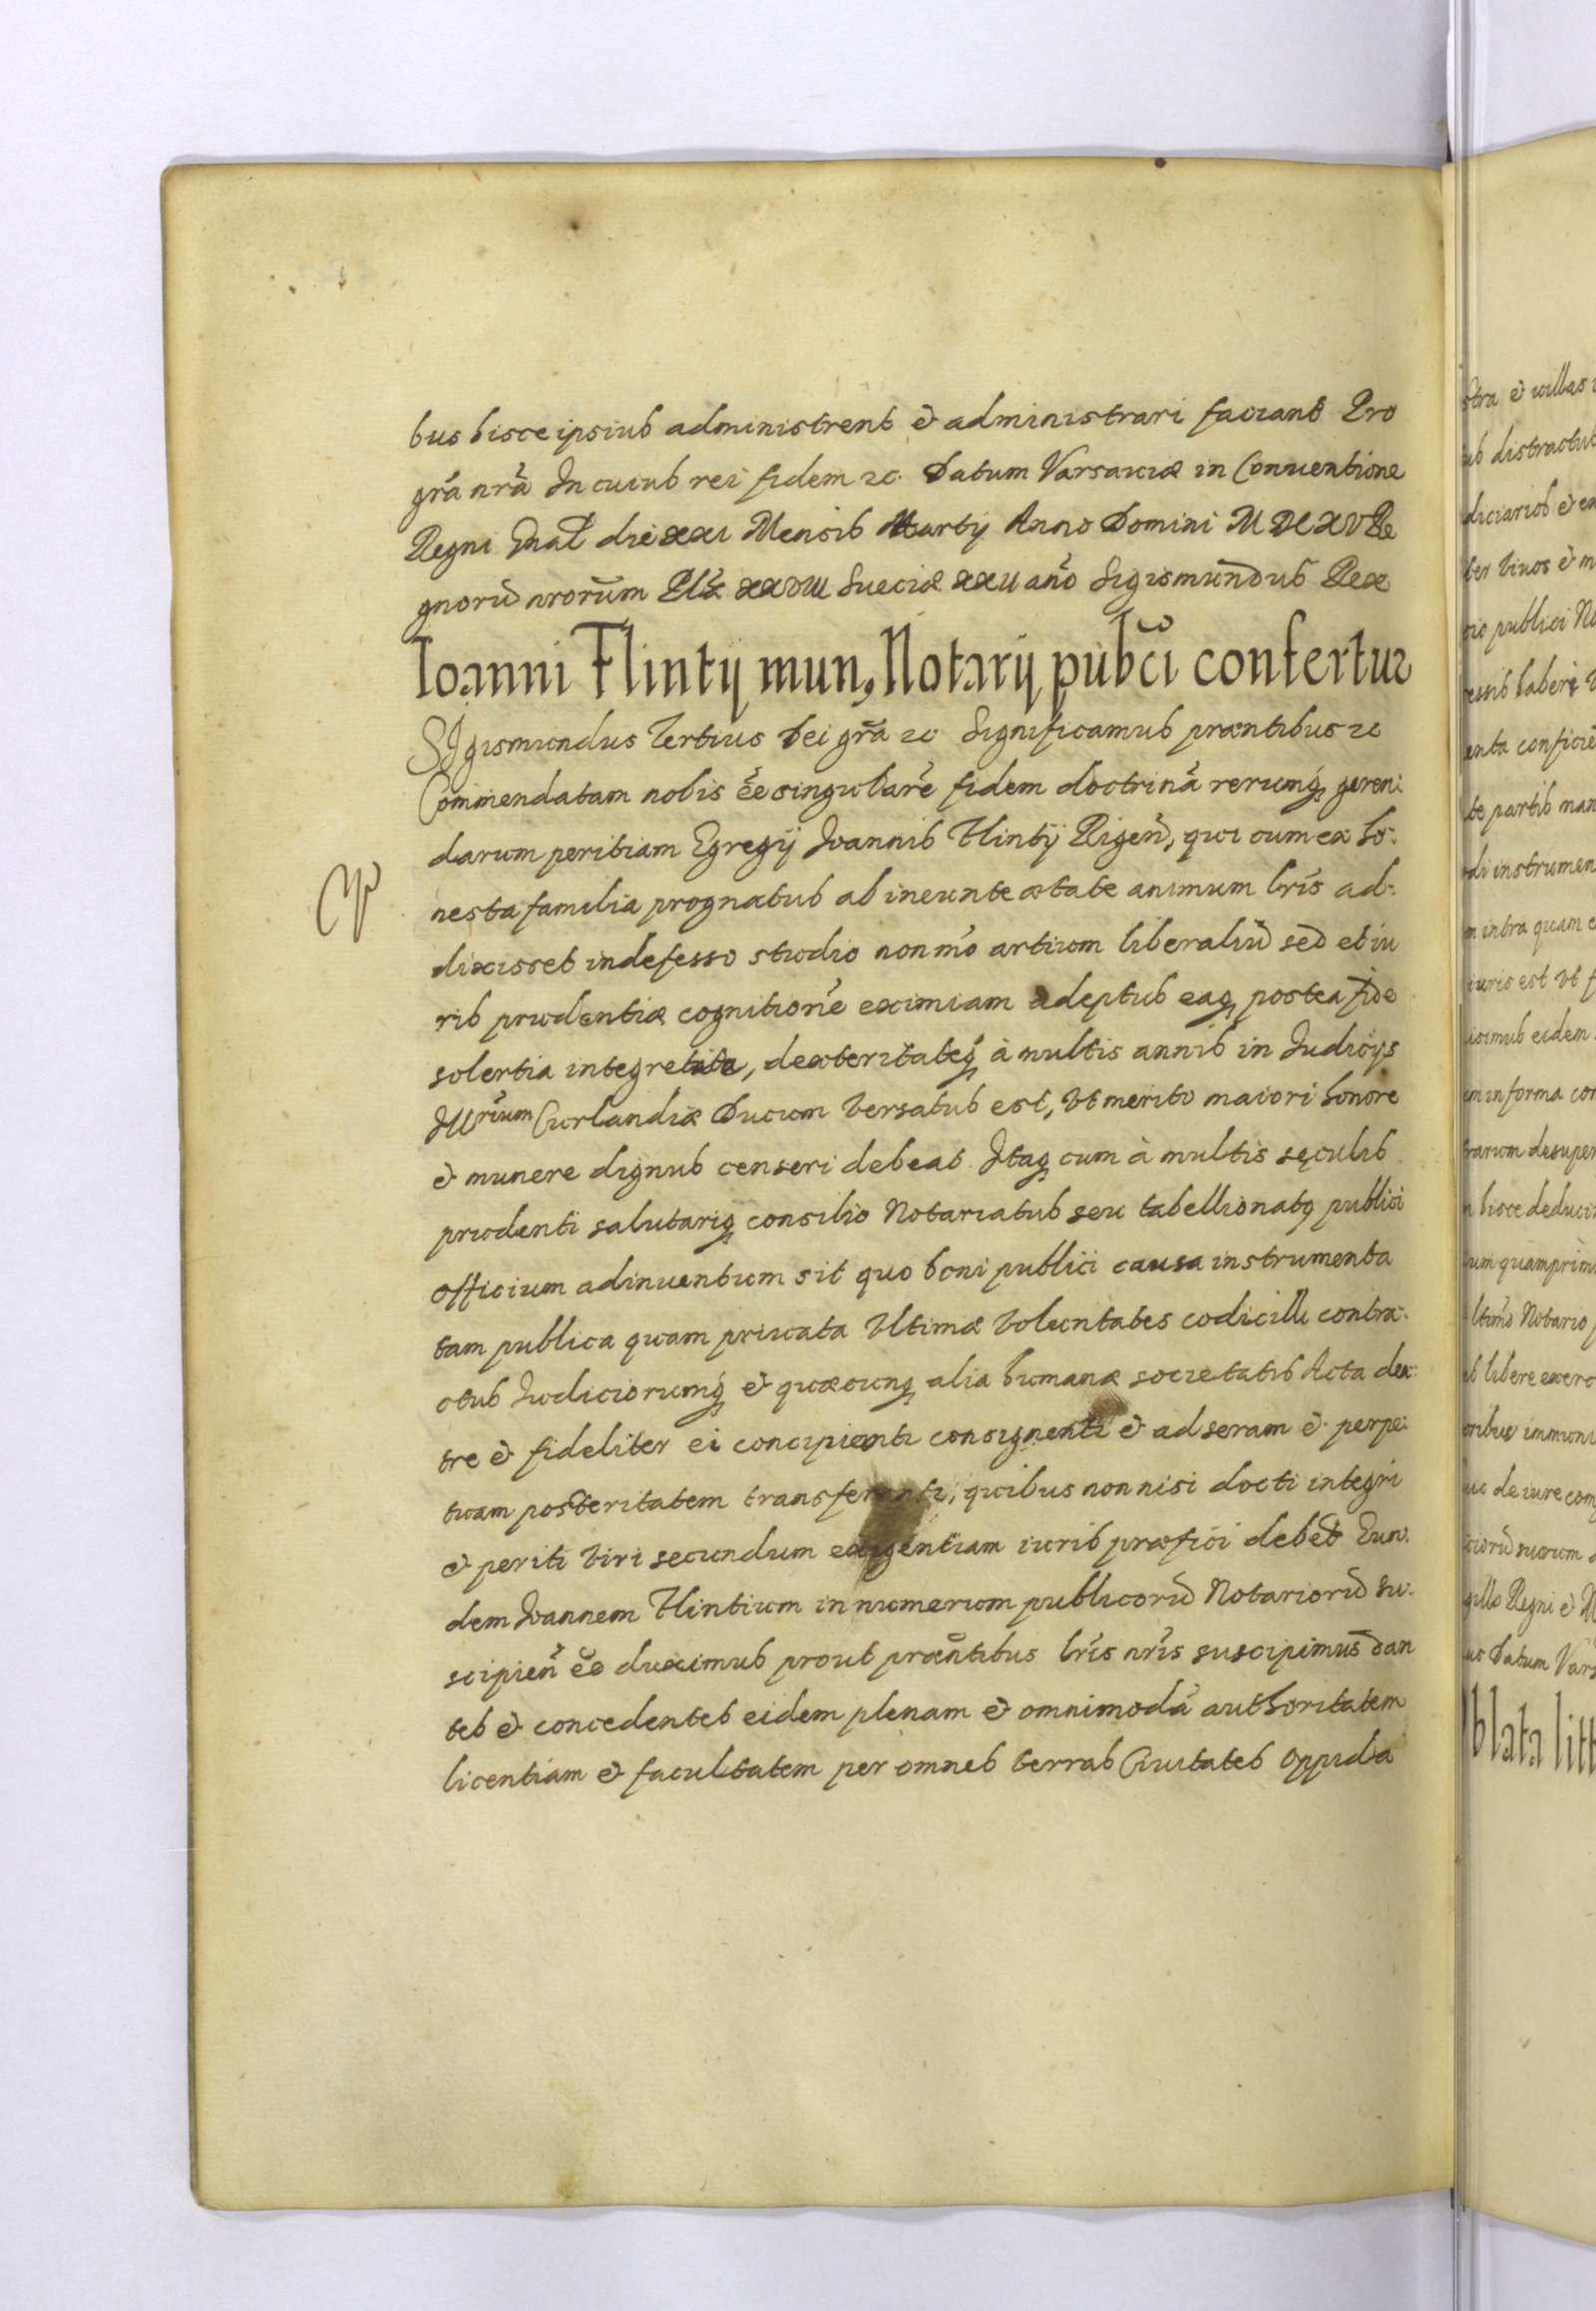 bus hisce ipsius administrent & administrari faciant Pro
grã nrã In cuius rei fidem ꝛc. Datum Varsaviæ in Conventione
Regni Gnal die xxi Mensis Martij Anno Domini MDCXV Re
gnorũ nrorũm Plæ xxviii Sueciæ xxii año Sigismundus Rex
Ioanni Flintij mun, Notarij pubcĩ confertur
SIgismundus Tertius Dei grã ꝛc Significamus præntibus ꝛc
Commendatam nobis ẽe singularẽ fidem doctrinã rerumq geren:
darum peritiam Egregij Ioannis Flintij Rigeñ, qui cum ex ho:
nesta familia prognatus ab ineunte ætate animum lrĩs ad:
dixisset indefesso studio non mõ artium liberaliũ sed et iu
ris prudentiæ cognitionẽ eximiam adeptus eaq postea fide
solertia integretate, dexteritateq à multis annis in Iudicijs
Illrĩum Curlandiæ Ducum versatus est, vt merito maiori honore
& munere dignus censeri debeat. Itaq cum à multis sęculis
prudenti salutariq consilio Notariatus seu tabellionatq publici
officium adinuentum sit quo boni publici causa instrumenta
tam publica quam priuata vltimæ voluntates codicilli contra:
ctus Iudiciorumq & quæcunq alia humanæ societatis Acta dex:
tre & fideliter ei concipienti consignenti & ad seram & perpe:
tuam posteritatem transferanti, quibus non nisi docti integri
& periti viri secundum exigentiam iuris præfici debẽt Eun:
dem Ioannem Flintium in numerum publicorũ Notariorũ su:
scipieñ ẽe duximus prout præntibus lrĩs nrĩs suscipimus dan
tes & concedentes eidem plenam & omnimodã authoritatem
licentiam & facultatem per omnes terras Ciuitates oppida